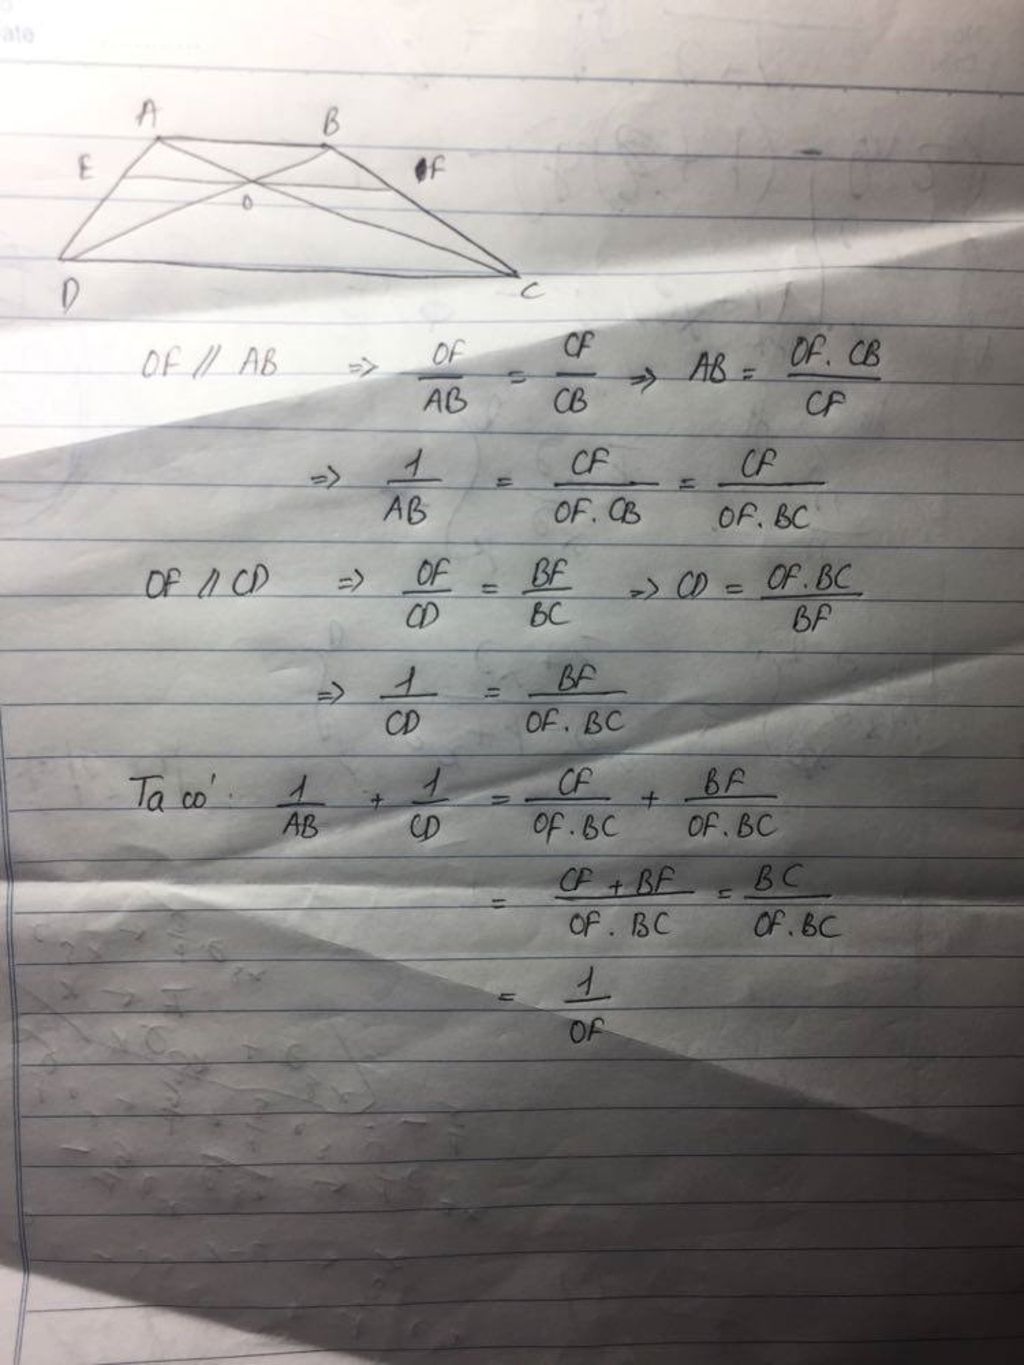 ate
A B
E F
O
D C
OF // AB => OF/AB = CF/CB => AB = OF. CB/CF
=> 1/AB = CF/OF. CB = CF/OF. BC
OF // CD => OF/CD = BF/BC => CD = OF. BC/BF
=> 1/CD = BF/OF. BC
Ta có: 1/AB + 1/CD = CF/OF. BC + BF/OF. BC
= CF + BF/OF. BC = BC/OF. BC
= 1/OF